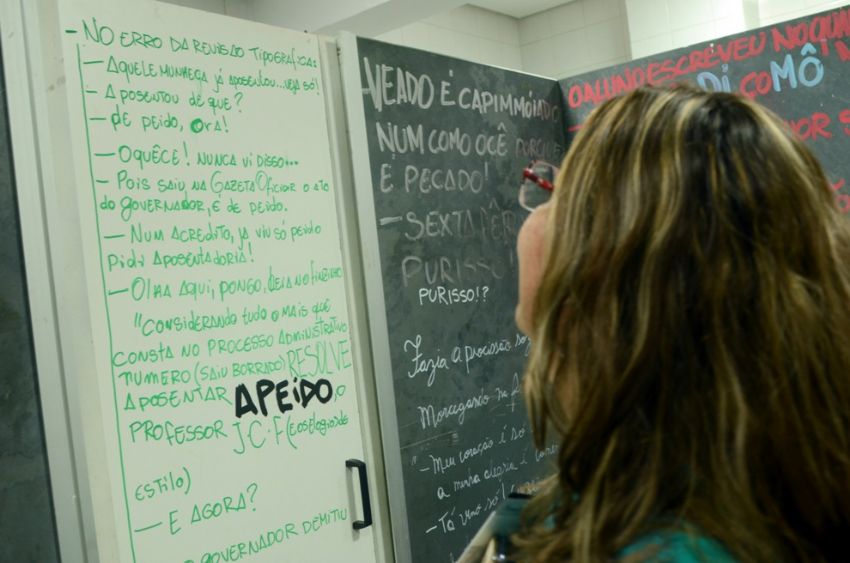 - NO ERRO DA REVISÃO TIPOGRAFICA:
- AQUELE MUNHEGA JÁ APOSENTOU... VEJA SÓ!
- APOSENTOU DE QUE?
- DE PEIDO, ORA!
- OQUÊCE! NUNCA VI DISSO...
- POIS SAIU NA GAZETA OFICIAR O ATO
DO GOVERNADOR, É DE PEIDO.
- NUM ACREDITO, JA VIU SÓ PEIDO
PIDI APOSENTADORIA!
- OLHA AQUI, PONGO, LEIA NO FINZINHO
"CONSIDERANDO TUDO O MAIS QUE
CONSTA NO PROCESSO ADMINISTRATIVO
NUMERO (SAIU BORRADO) RESOLVE
APOSENTAR APEIDO, O
PROFESSOR J.C.F (E OS ELOGIO DE
ESTILO)
- E AGORA?
GOVERNADOR DEMITIU
VEADO É CAPIMMÓIADO
NUM COMO OCÊ PORQUE
É PECADO!
- SEXTA FÊR
PURISSO!
PURISSO!?
Fazia a procissão
Morcegando na
- Meu coração é só
a minha alegria é
- Tá vino só!
O ALUNO ESCREVEU NO QUA
DI ÇOMÔ